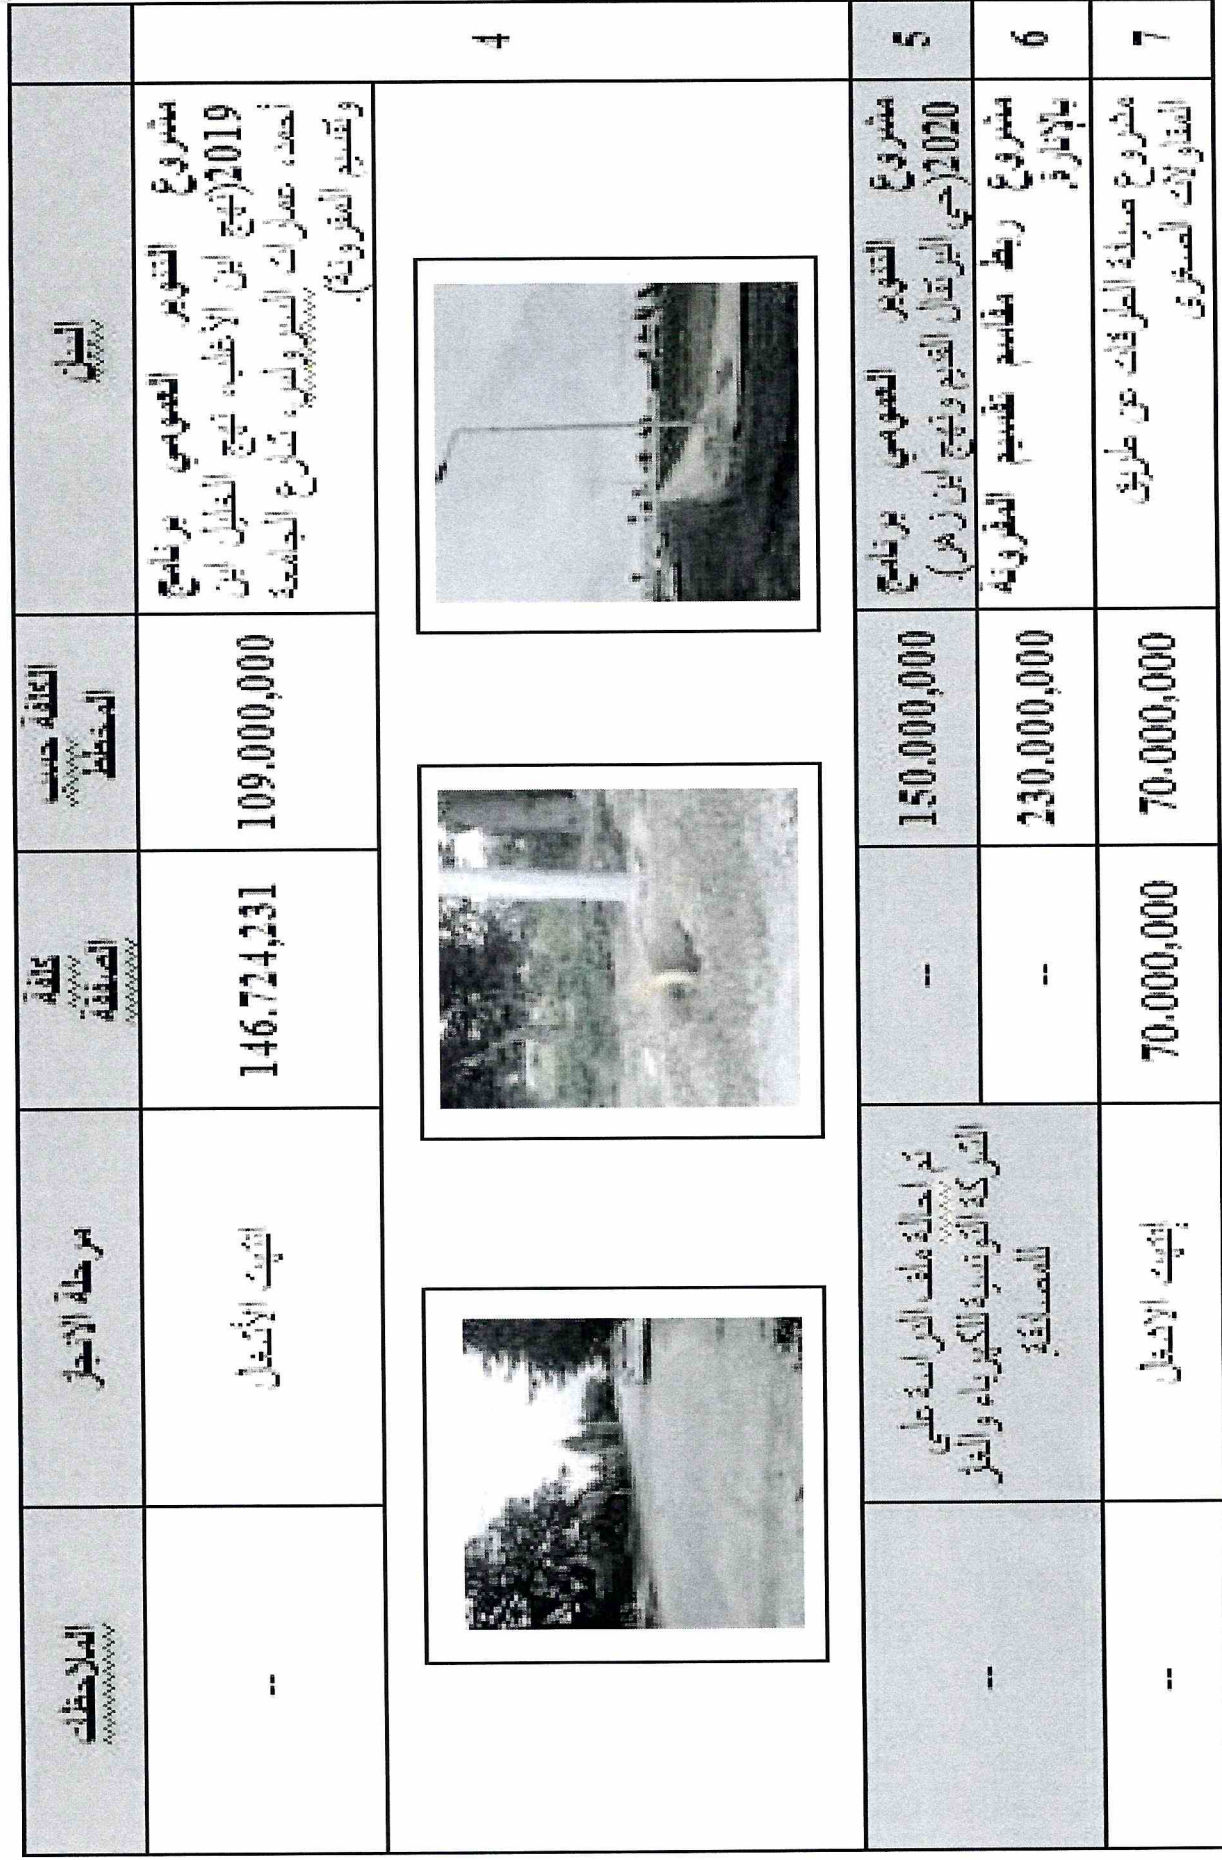 البيان
الكلفة حسب
المخطط
كلفة
الصفقة
مرحلة الانجاز
الملاحظات
4
مشروع التنوير العمومي برنامج
2019(نهج ابن الأغلب، نهج
أحمد، شارع الجامعة
وتقسيم المقرونة).
109.000,000
146.724,231
انتهت الأشغال
--
5
مشروع التنوير العمومي برنامج
2020(حي البرتقال القديم ونهج ابن زهر)
150.000,000
--
تم احالة ملف الدراسة على
الشركة التونسية للكهرباء والغاز
للمصادقة
--
6
مشروع ربط مقاسم تقسيم المقرونة
بالانارة
230.000,000
--
7
مشروع صيانة الطرقات عن طريق
المقاولات الصغرى
70.000,000
70.000,000
انتهت الاشغال
--